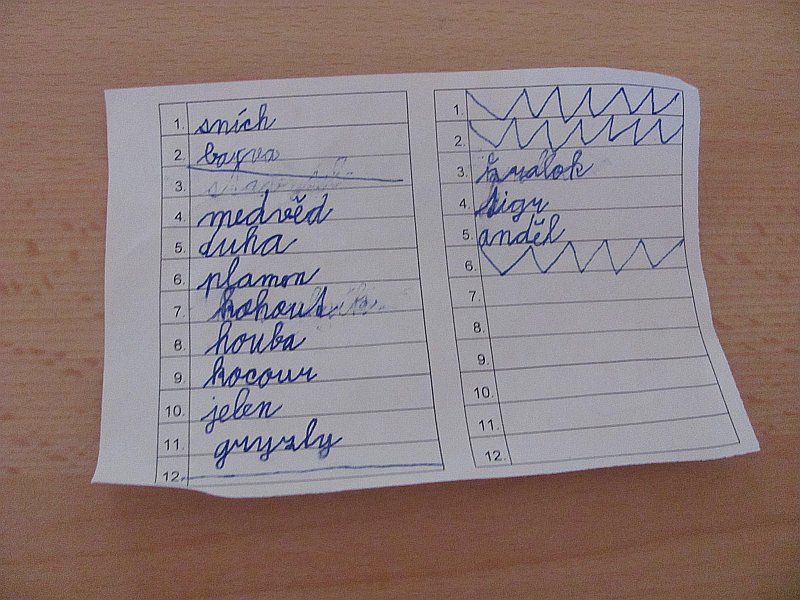 1. sních
2. barva
3.
4. medvěd
5. duha
6. plamen
7. kohout
8. houba
9. kocour
10. jelen
11. gryzly
12.
1.
2.
3. králok
4. tigr
5. anděl
6.
7.
8.
9.
10.
11.
12.